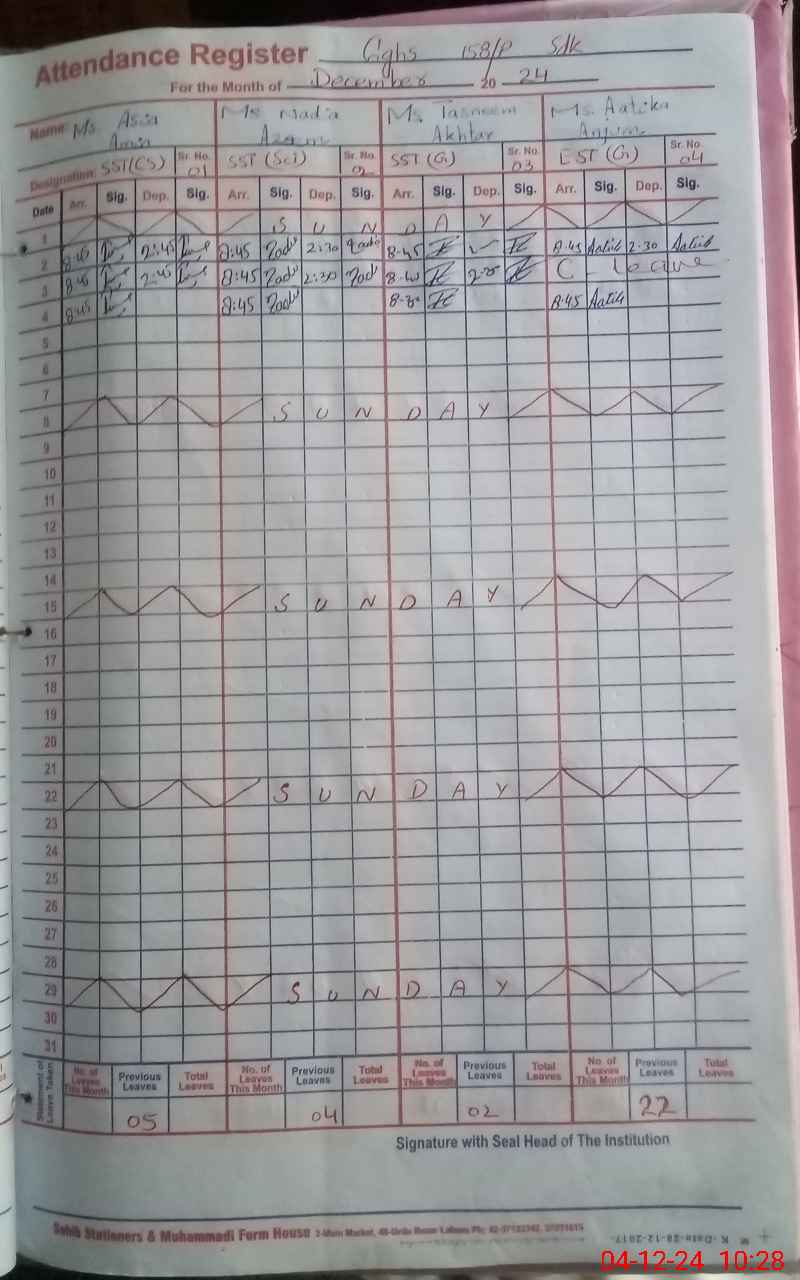 Attendance Register Gghs 158/P Sdk
For the Month of December 20 24
Name: Ms. Asia Ms. Nadia Ms. Tasneem Ms. Aatika
Amin Azeem Akhtar Anjum
Designation: SST(CS) Sr. No. 01 SST (Sci) Sr. No. 02 SST (G) Sr. No. 03 EST (G) Sr. No. 04
Date Arr. Sig. Dep. Sig. Arr. Sig. Dep. Sig. Arr. Sig. Dep. Sig. Arr. Sig. Dep. Sig.
1 S U N D A Y
2 8:45 2:45 8:45 2:30 8-45 8.45 Aatik 2-30 Aatik
3 8:45 2:45 8:45 2:30 8-40 C - leave
4 8:45 8:45 8.45 Aatik
5
6
7
8 S U N D A Y
9
10
11
12
13
14
15 S U N D A Y
16
17
18
19
20
21
22 S U N D A Y
23
24
25
26
27
28
29 S U N D A Y
30
31
Statement of Leave Taken No. of Leaves This Month Previous Leaves Total Leaves No. of Leaves This Month Previous Leaves Total Leaves No. of Leaves This Month Previous Leaves Total Leaves No. of Leaves This Month Previous Leaves Total Leaves
05 04 02 22
Signature with Seal Head of The Institution
Sahib Stationers & Muhammadi Form House 2-Main Market, 40-Urdu Bazar Lahore
M K-Date-28-12-2017
04-12-24 10:28